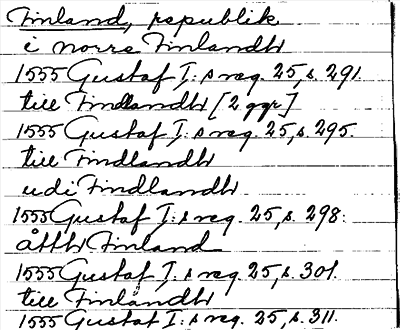 Finland, republik
i norre Finlandh
1555 Gustaf I:s reg. 25, s. 291.
till Findlandh [2 ggr]
1555 Gustaf I:s reg. 25, s. 295.
till Findlandh
udi Findlandh
1555 Gustaf I:s reg. 25, s. 298.
åtth Finland
1555 Gustaf I:s reg. 25, s. 301.
till Finlandh
1555 Gustaf I:s reg. 25, s. 311.